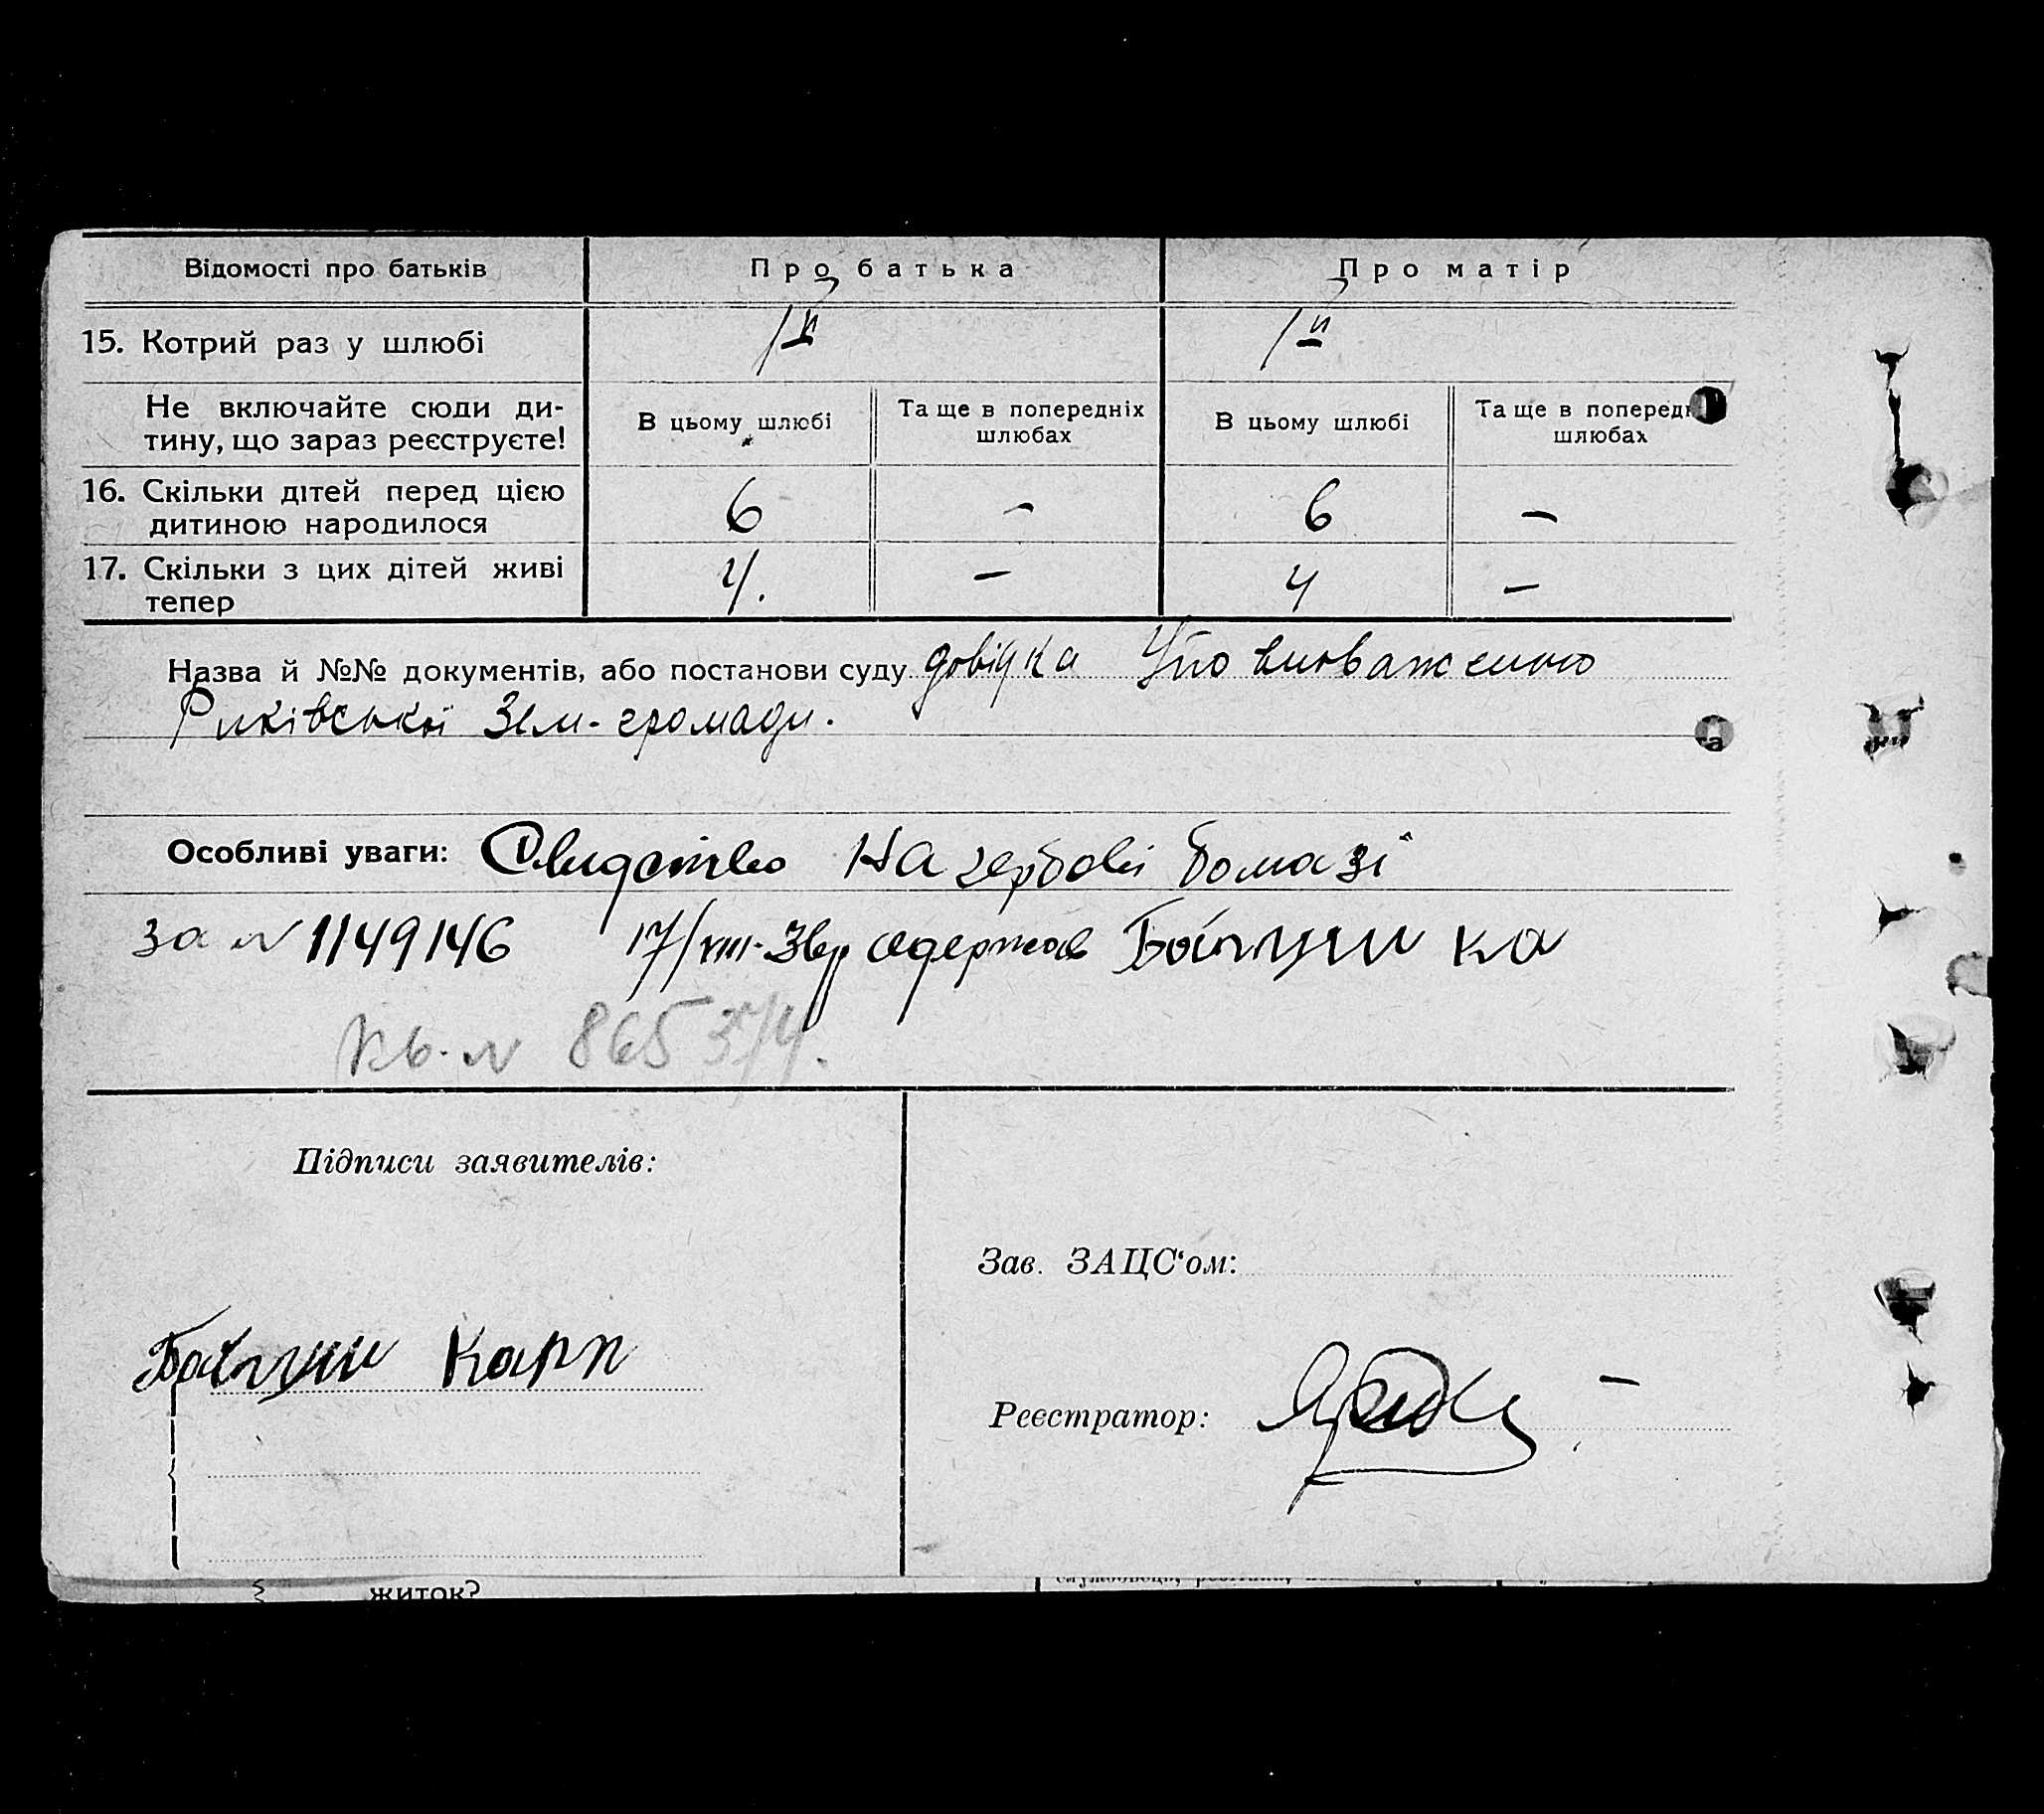 Відомості про батьків Про батька Про матір
15. Котрий раз у шлюбі 1й 1й
Не включайте сюди ди-
тину, що зараз реєструєте!
В цьому шлюбі Та ще в попередніх шлюбах В цьому шлюбі Та ще в поперед шлюбах
16. Скільки дітей перед цією
дитиною народилося 6 – 6 –
17. Скільки з цих дітей живі
тепер 4. – 4 –
Назва й №№ документів, або постанови суду довідка Уповноваженого
Риківської Зем. громади.
Особливі уваги: Свидство на гербові бомазі
за № 1149146 17/VIII-38р одержав
Кв. № 865
Підписи заявителів:
Зав. ЗАЦС‘ом:
Карп
Реєстратор:
житок?